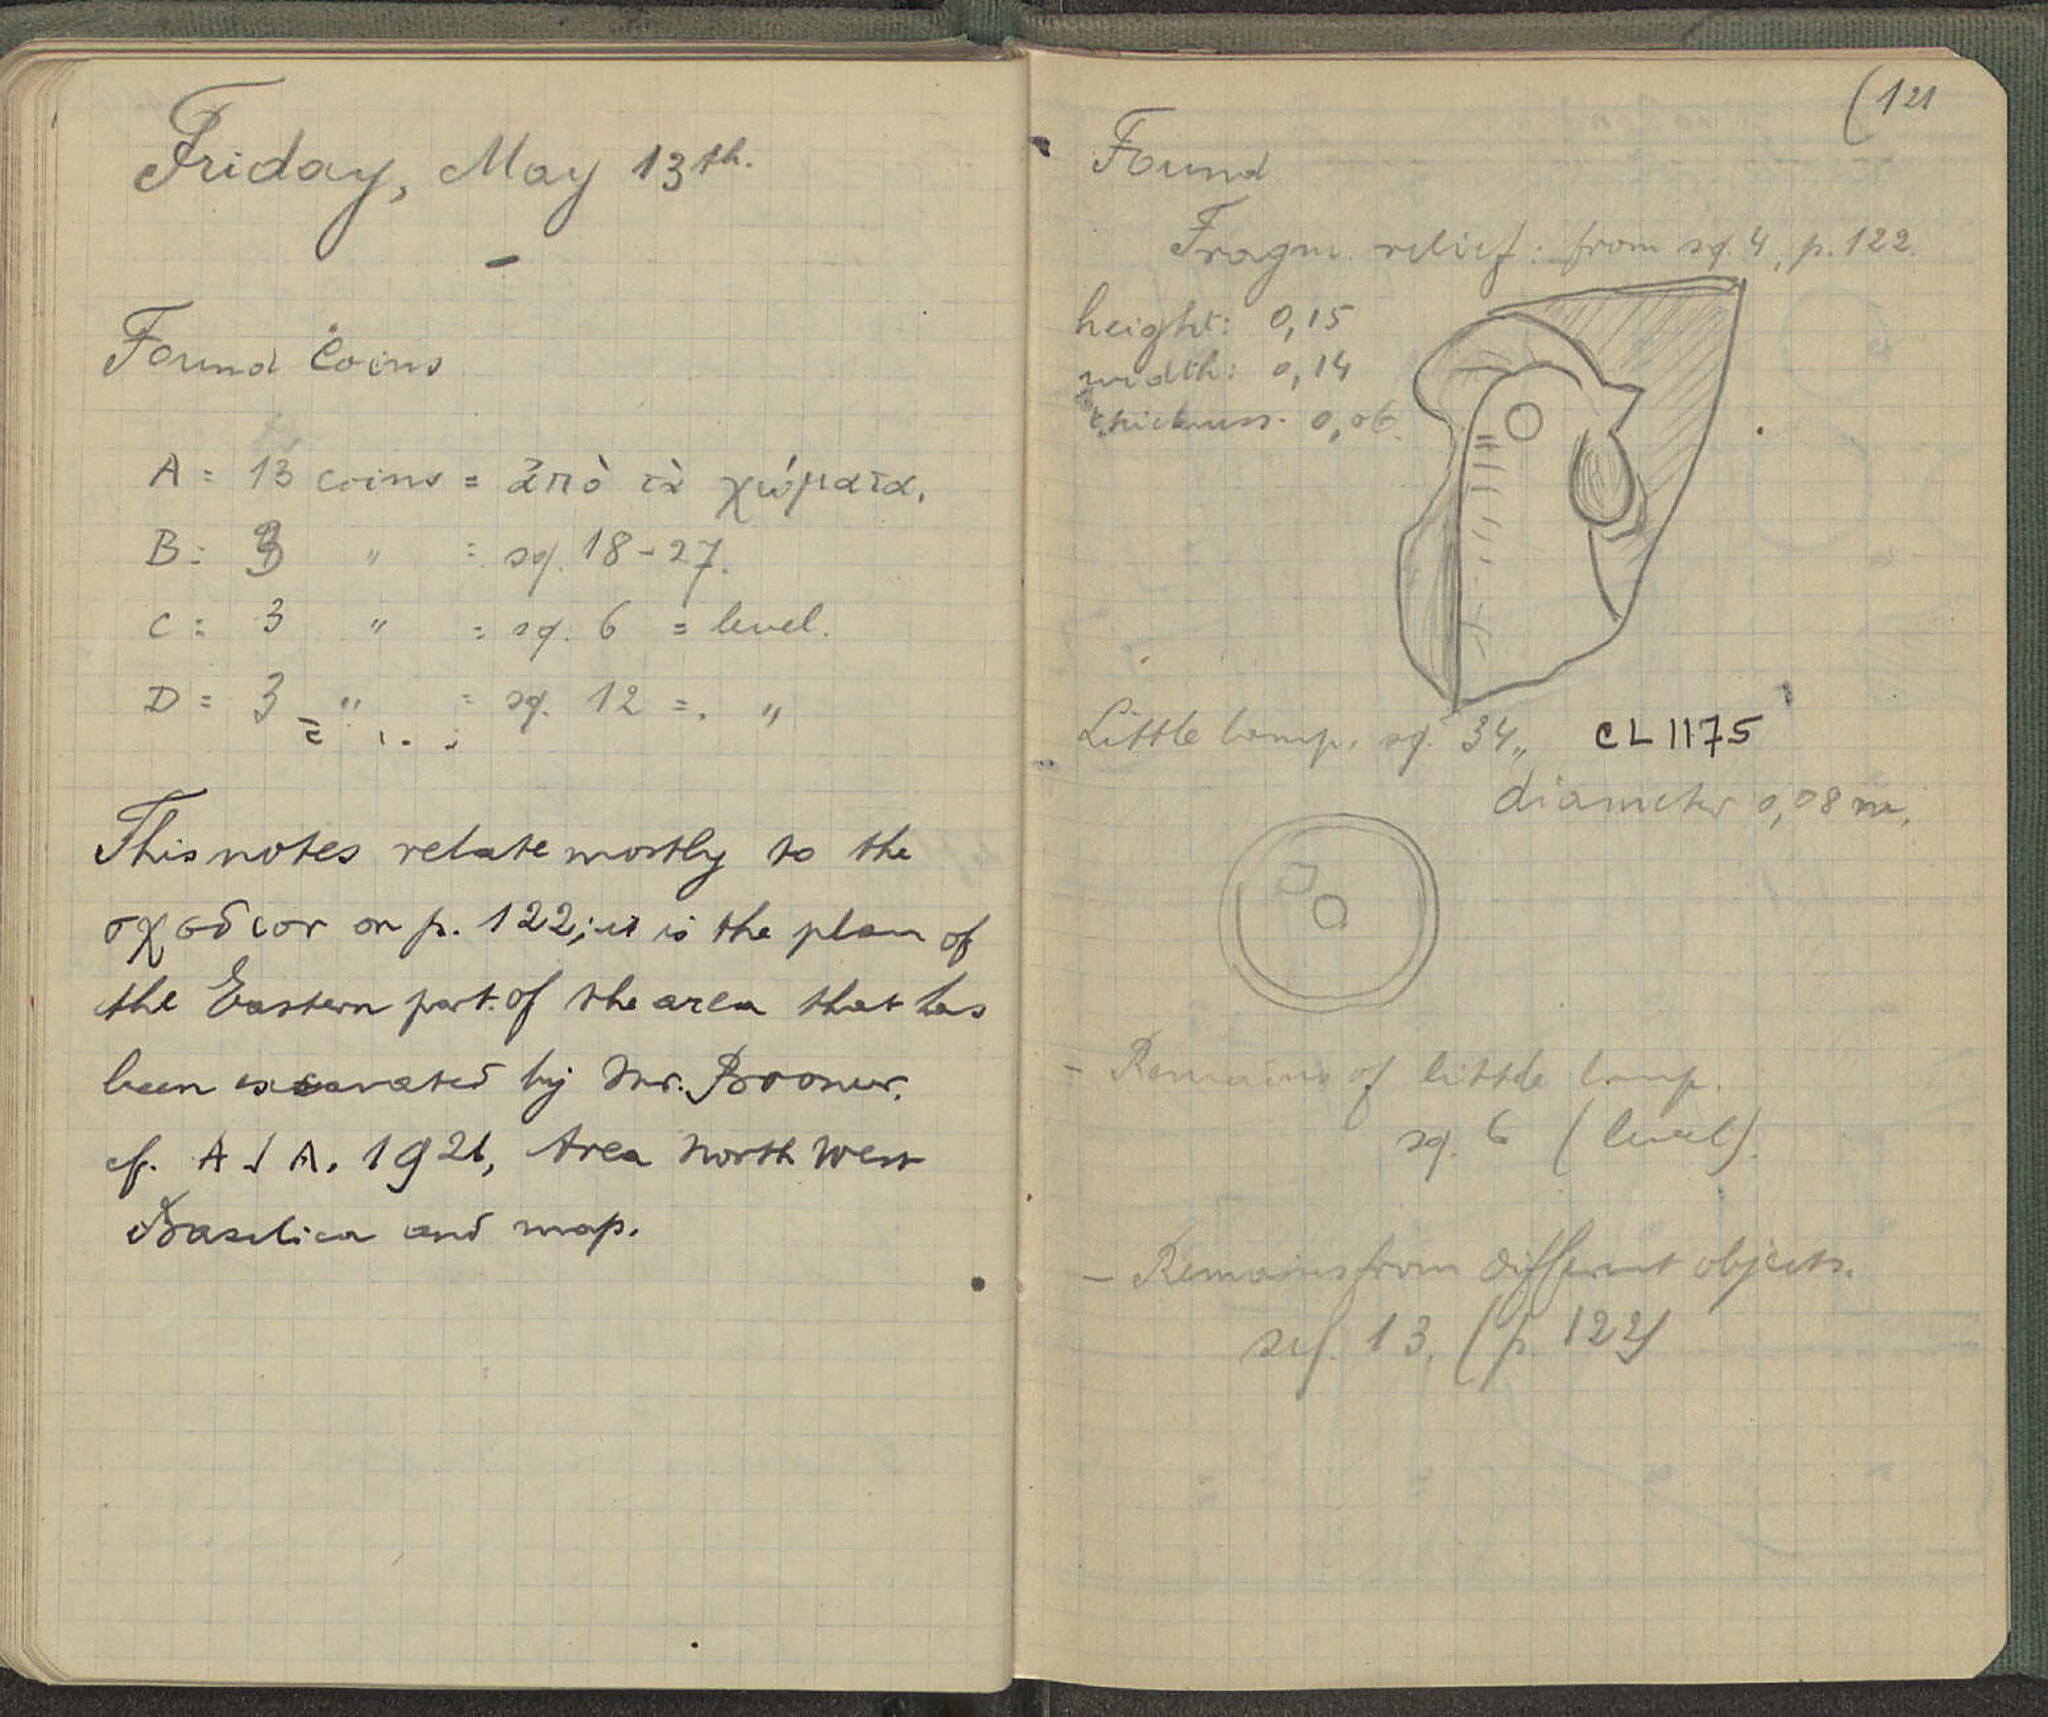 Friday, May 13th.
Found Coins
A = 13 coins = ἀπὸ τὰ χώματα.
B = 3 " = sq. 18-27.
C = 3 " = sq. 6 = level.
D = 3 " = sq. 12 = "
This notes relate mostly to the
σχεδιον on p. 122; it is the plan of
the Eastern part of the area that has
been excavated by Mr. Broneer.
cf. AJA. 1926, Area North West
Basilica and map.
(121
Found
Fragm. relief: from sq. 4, p. 122.
height: 0,15
width: 0,14
thickness. 0,06.
Little lamp, sq. 34,, CL 1175
diameter 0,08 m.
- Remains of little lamp.
sq. 6 (level).
- Remains from different objects.
sq. 13. (p. 122)